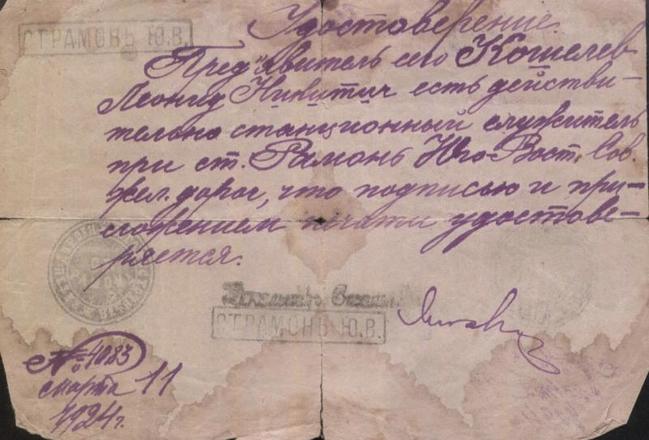 Удостоверение.
СТ.РАМОНЬ Ю.В.
Пред"явитель сего Кошелев
Леонид Никитич есть действи-
тельно станционный служитель
при ст. Рамонь Юго-Вост. Сов.
жел. дорог, что подписью и при-
ложением печати удостове-
ряется.
СТ.РАМОНЬ Ю.В.
№ 4083
марта 11
1924 г.